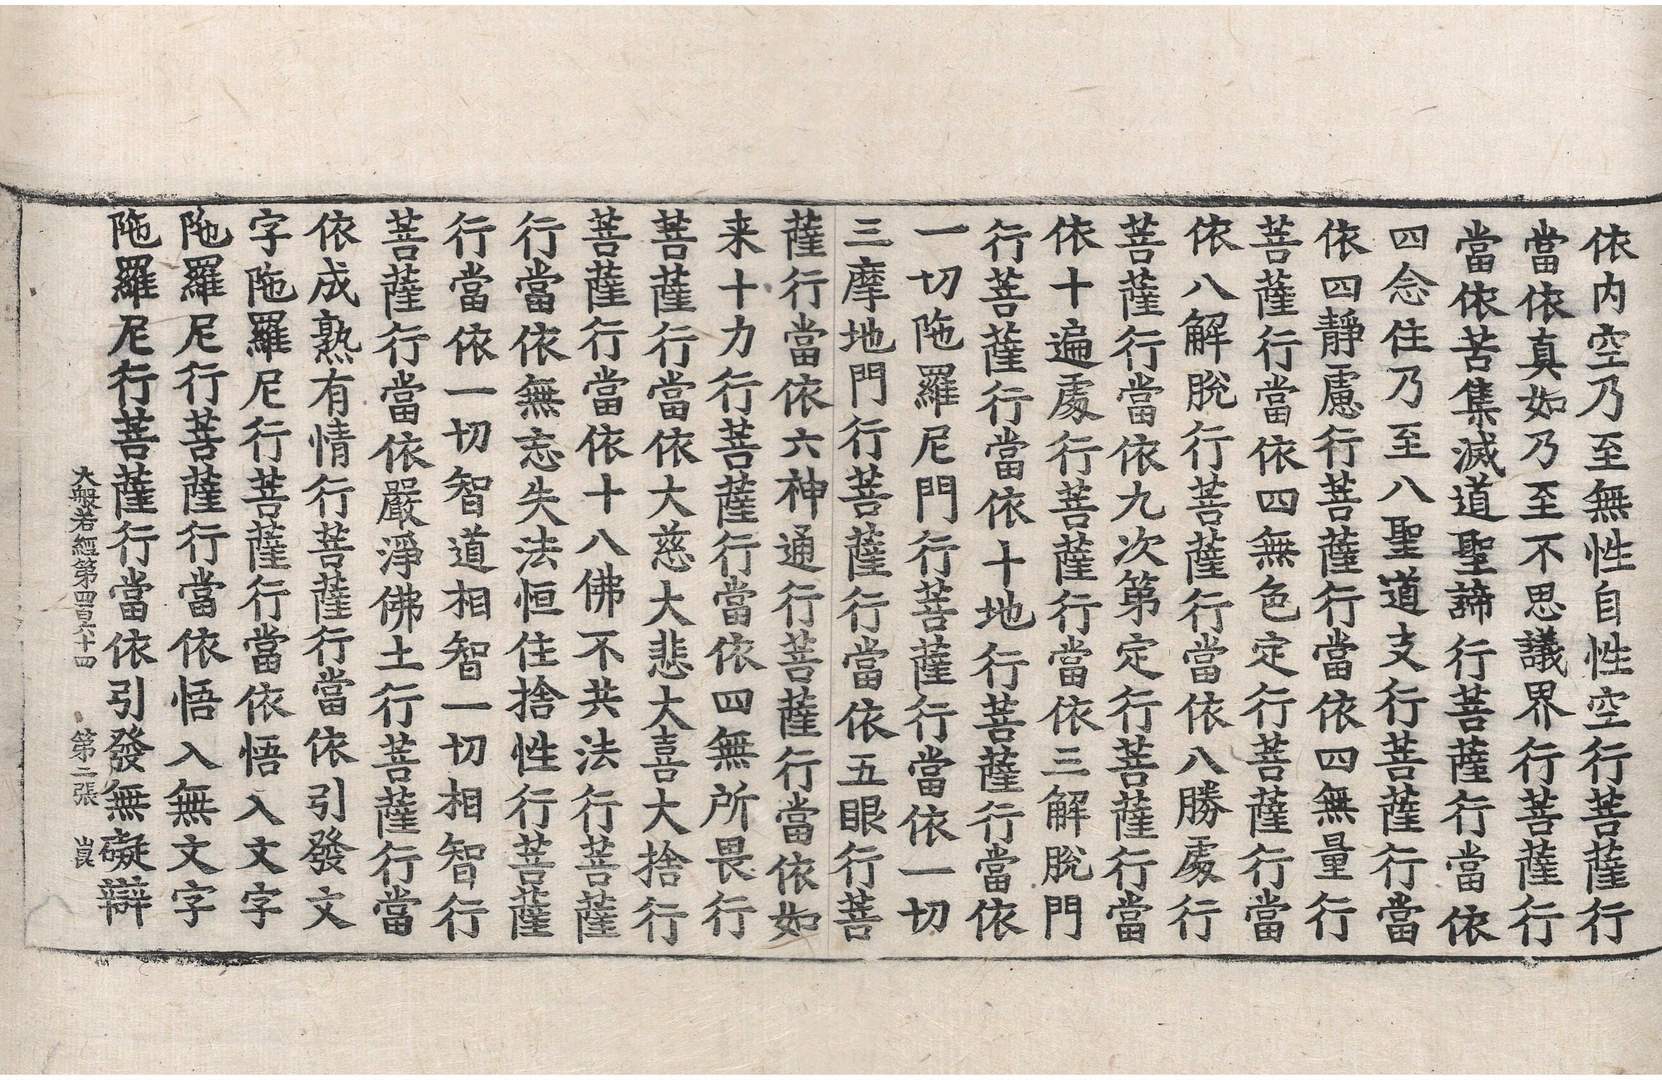 依内空乃至無性自性空行菩薩行
當依真如乃至不思議界行菩薩行
當依苦集滅道聖諦行菩薩行當依
四念住乃至八聖道支行菩薩行當
依四靜慮行菩薩行當依四無量行
菩薩行當依四無色定行菩薩行當
依八解脫行菩薩行當依八勝處行
菩薩行當依九次第定行菩薩行當
依十遍處行菩薩行當依三解脫門
行菩薩行當依十地行菩薩行當依
一切陁羅尼門行菩薩行當依一切
三摩地門行菩薩行當依五眼行菩
薩行當依六神通行菩薩行當依如
来十力行菩薩行當依四無所畏行
菩薩行當依大慈大悲大喜大捨行
菩薩行當依十八佛不共法行菩薩
行當依無忘失法恒住捨性行菩薩
行當依一切智道相智一切相智行
菩薩行當依嚴淨佛土行菩薩行當
依成熟有情行菩薩行當依引發文
字陁羅尼行菩薩行當依悟入文字
陁羅尼行菩薩行當依悟入無文字
陁羅尼行菩薩行當依引發無礙辯
大般若經第四百六十四 第二張 崑